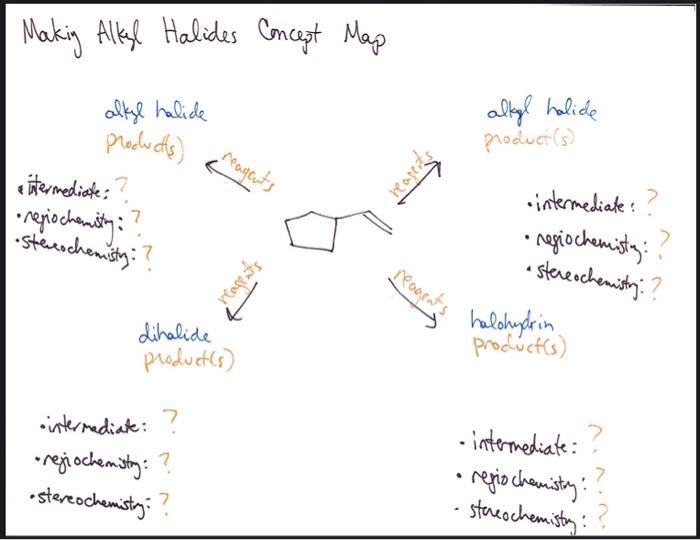 Making Alkyl Halides Concept Map
alkyl halide
product(s)
reagents
• intermediate: ?
• regiochemistry: ?
• stereochemistry: ?
alkyl halide
product(s)
reagents
• intermediate: ?
• regiochemistry: ?
• stereochemistry: ?
reagents
dihalide
product(s)
• intermediate: ?
• regiochemistry: ?
• stereochemistry: ?
reagents
halohydrin
product(s)
• intermediate: ?
• regiochemistry: ?
• stereochemistry: ?